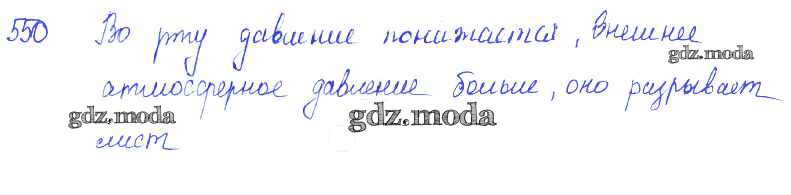 550 Во рту давление понижается, внешнее
gdz.moda
атмосферное давление больше, оно разрывает
gdz.moda gdz.moda
лист